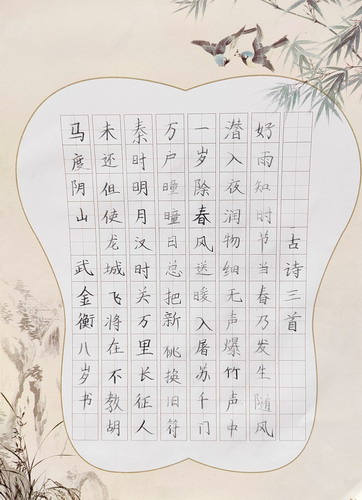 古诗三首
好雨知时节当春乃发生随风
潜入夜润物细无声爆竹声中
一岁除春风送暖入屠苏千门
万户瞳瞳日总把新桃换旧符
秦时明月汉时关万里长征人
未还但使龙城飞将在不教胡
马度阴山 武金衡八岁书